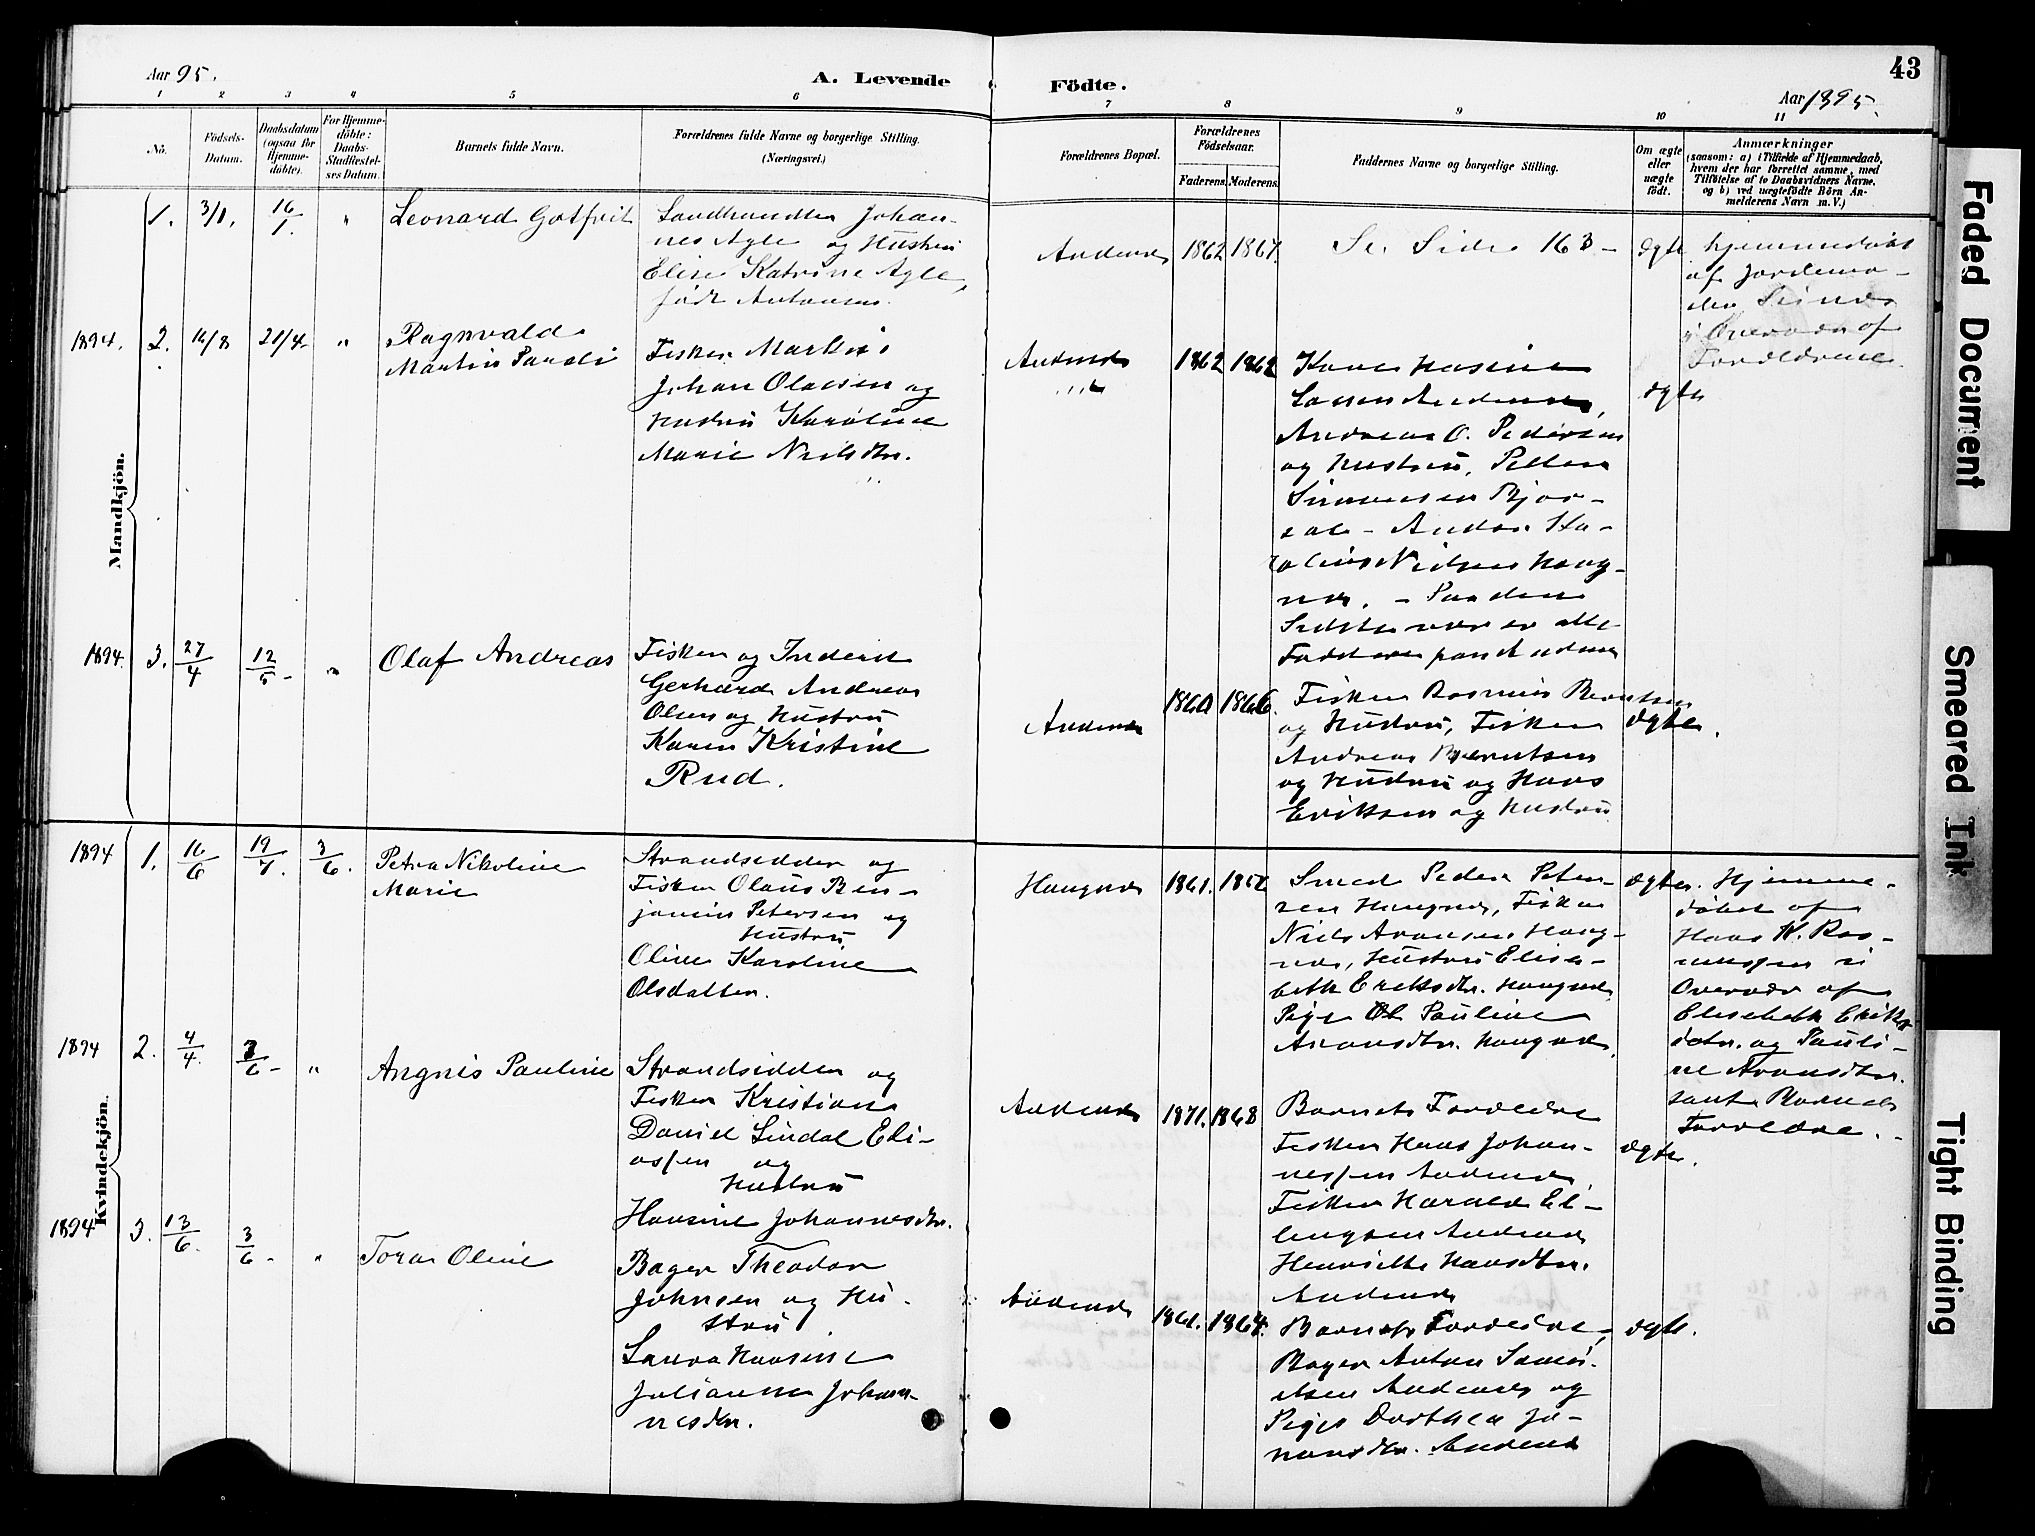 Aar 95.
A. Levende
Födte.
43
Aar 1895.
1 2 3 4 5 6 7 8 9 10 11
No.
Födsels-Datum.
Daabsdatum (ogsaa for Hjemme-döbte).
For Hjemme-döbte: Daabs-Stadfæstel-ses Datum.
Barnets fulde Navn.
Forældrenes fulde Navne og borgerlige Stilling.
(Næringsvei.)
Forældrenes Bopæl.
Forældrenes Födselsaar.
Faderens. Moderens.
Faddernes Navne og borgerlige Stilling.
Om ægte eller uægte födt.
Anmærkninger
(saasom: a) i Tilfælde af Hjemmedaab,
hvem der har forrettet samme, med
Tilföielse af to Daabsvidners Navne,
og b) ved uægtefödte Börn An-
melderens Navn m. V.)
Mandkjön.
1. 3/1. 16/1. "
Leonard Gotfrit
Landhandler Johan-
nes Agle og Hustru
Elise Katrine Agle,
født Antonsen.
Andenes 1862 1867.
Se Side 163 -
ægte
Hjemmedøbt
af Jordemo-
der
i Overvær af
Forældrene.
1894. 2. 14/8 21/4 "
Ragnvald
Martin Paudi
Fisker Markus
Johan Olaesen og
Hustru Karoline
Marie Nielsdtr.
Andenes
1862 1862
Kone Hasine
Larsen Andenes,
Andreas O. Pedersen
og Hustru, Petter
Simonsen Bjor-
- Anders Ka-
rolius Nielsen Haug-
nes. -
Sidste nær er alle
Faddere paa Andenes
ægte
1894. 3. 27/4 12/6 - "
Olaf Andreas
Fisker og Inderst
Gerhard Andreas
Olsen og Hustru
Karen Kristine
Rud.
Andenes
1860 1866.
Fisker Rasmus Berntsen
og Hustru, Fisker
Andreas Berntsen
og Hustru og Hans
Eriksen og Hustru
ægte.
Kvindekjön.
1894 1. 16/6 19/7. 3/6.
Petra Nikoline
Marie
Strandsidder og
Fisker Olaus Ben-
jamin Petersen og
Hustru
Oline Karoline
Olsdatter.
Haugnes 1861. 1852
Smed Peder Peter-
sen Haugnes, Fisker
Niels Aronsen Haug-
nes, Hustru Elisa-
beth Eriksdtr. Haugnes
Pige Pauline
Aronsdtr. Haugnes.
ægte.
Hjemme-
døbt af
Hans K. Ras-
mussen i
Overvær af
Elisabeth Eriks
dtr. og Pauli-
ne Aronsdtr.
samt Barnets
Forældre. -
1894 2. 4/4. 3/6 - "
Angnis Pauline
Strandsidder og
Fisker Kristian
Daniel Lindal Eli-
assen og
Hustru
Hansine Johannesdtr.
Andenes 1871. 1868
Barnets Forældre
Fisker Hans Johan-
nessen Andenes,
Fisker Harald El-
lingsen Andenes
Henriette Hansdtr.
Andenes
ægte.
1894 3. 13/6. 3/6 - "
Tora Oline
Bager Theodor
Johnsen og Hu-
stru
Laura Hansine
Julianne Johan-
nesdtr.
Andenes 1861. 1864.
Barnets Forældre,
Bager Anton Samu-
elsen Andenes og
Pige Dorthea Jo-
hansdtr. Andenes
ægte.
Faded Document
Smeared Ink
Tight Binding